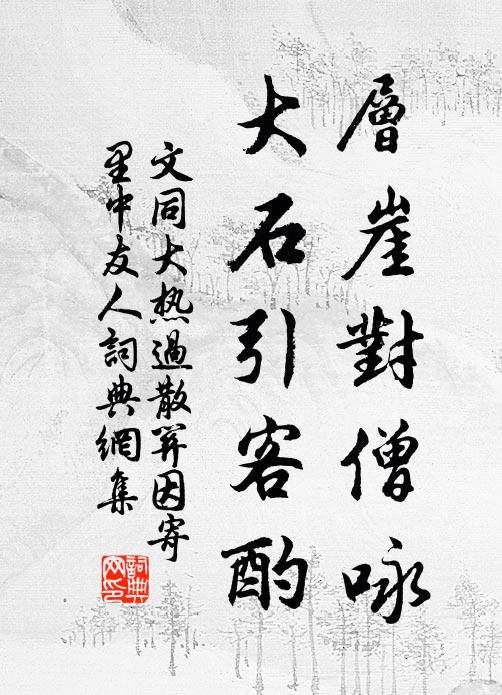 層崖對僧咏
大石引客酌
文同大热過散笄因寄
里中友人詞典網集
詞典
网印